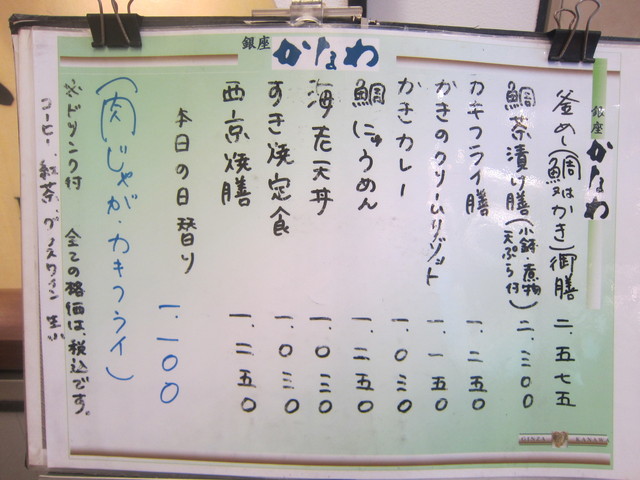 銀座 かなわ
銀座 かなわ
釜めし(鯛又はかき)御膳 二、五七五
鯛茶漬け膳(小鉢・煮物 天ぷら付) 二、三〇〇
カキフライ膳 一、二五〇
かきのクリームリゾット 一、一五〇
かきカレー 一、〇三〇
鯛にゅうめん 一、二五〇
海老天丼 一、〇三〇
すき焼定食 一、〇三〇
西京焼膳 一、二五〇
本日の日替り 一、一〇〇
(肉じゃが・カキフライ)
※ドリンク付 全ての価格は、税込です。
コーヒー、紅茶、グラスワイン
GINZA KANAWA